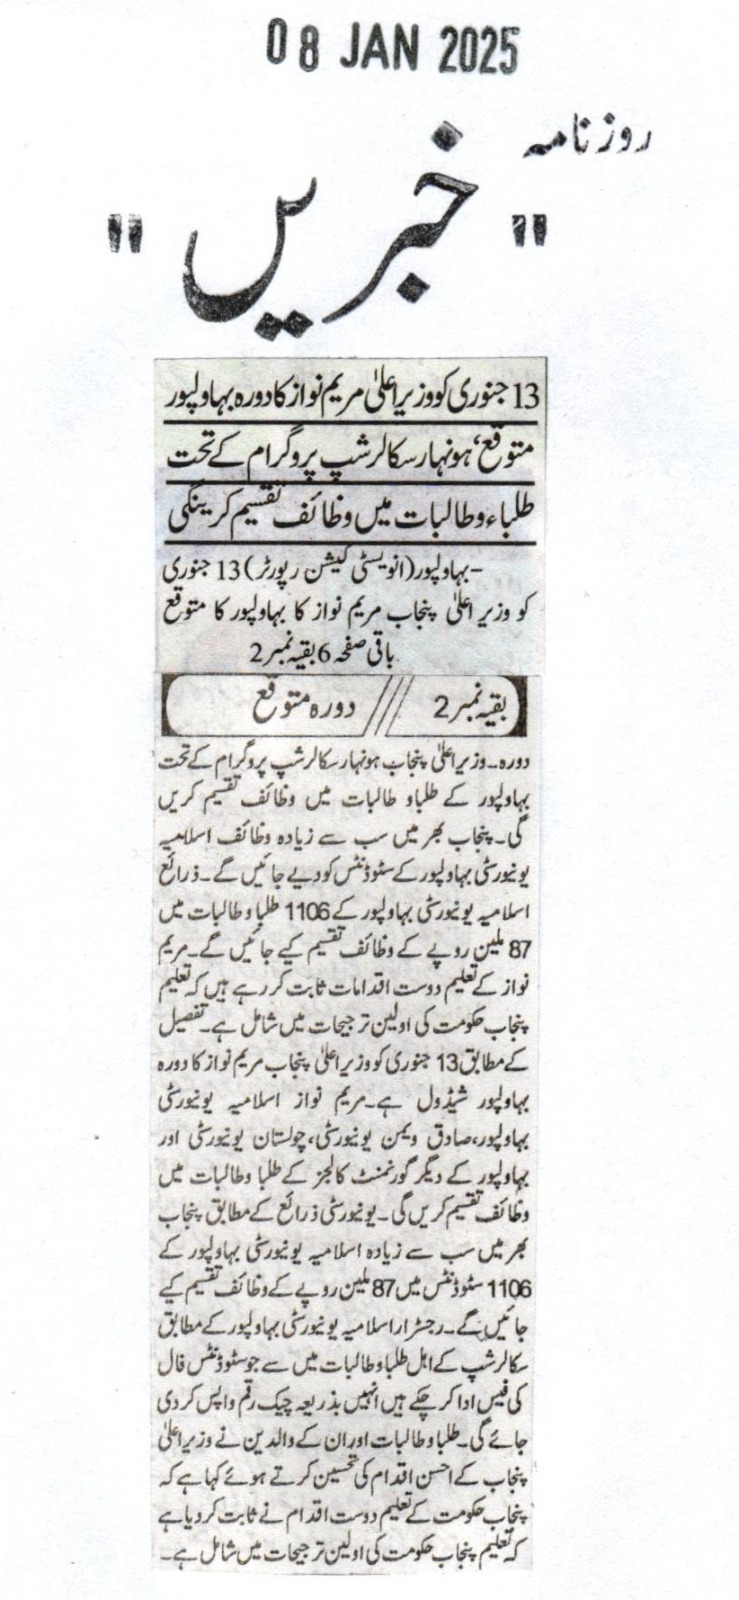 08 JAN 2025
روزنامہ
"خبریں"
13 جنوری کو وزیراعلیٰ مریم نواز کا دورہ بہاولپور
متوقع، ہونہار سکالر شپ پروگرام کے تحت
طلباء و طالبات میں وظائف تقسیم کرینگی
-بہاولپور (انویسٹی گیشن رپورٹر) 13 جنوری
کو وزیر اعلیٰ پنجاب مریم نواز کا بہاولپور کا متوقع
باقی صفحہ 6 بقیہ نمبر 2
بقیہ نمبر 2 /// دورہ متوقع
دورہ۔ وزیراعلیٰ پنجاب ہونہار سکالرشپ پروگرام کے تحت
بہاولپور کے طلباو طالبات میں وظائف تقسیم کریں
گی۔ پنجاب بھر میں سب سے زیادہ وظائف اسلامیہ
یونیورسٹی بہاولپور کے سٹوڈنٹس کو دیے جائیں گے۔ ذرائع
اسلامیہ یونیورسٹی بہاولپور کے 1106 طلبا و طالبات میں
87 ملین روپے کے وظائف تقسیم کیے جائیں گے۔ مریم
نواز کے تعلیم دوست اقدامات ثابت کر رہے ہیں کہ تعلیم
پنجاب حکومت کی اولین ترجیحات میں شامل ہے۔ تفصیل
کے مطابق 13 جنوری کو وزیراعلیٰ پنجاب مریم نواز کا دورہ
بہاولپور شیڈول ہے۔ مریم نواز اسلامیہ یونیورسٹی
بہاولپور، صادق ویمن یونیورسٹی، چولستان یونیورسٹی اور
بہاولپور کے دیگر گورنمنٹ کالجز کے طلبا و طالبات میں
وظائف تقسیم کریں گی۔ یونیورسٹی ذرائع کے مطابق پنجاب
بھر میں سب سے زیادہ اسلامیہ یونیورسٹی بہاولپور کے
1106 سٹوڈنٹس میں 87 ملین روپے کے وظائف تقسیم کیے
جائیں گے۔ رجسٹرار اسلامیہ یونیورسٹی بہاولپور کے مطابق
سکالرشپ کے اہل طلبا و طالبات میں سے جو سٹوڈنٹس فال
کی فیس ادا کر چکے ہیں انہیں بذریعہ چیک رقم واپس کر دی
جائے گی۔ طلبا و طالبات اور ان کے والدین نے وزیراعلیٰ
پنجاب کے احسن اقدام کی تحسین کرتے ہوئے کہا ہے کہ
پنجاب حکومت کے تعلیم دوست اقدام نے ثابت کر دیا ہے
کہ تعلیم پنجاب حکومت کی اولین ترجیحات میں شامل ہے۔